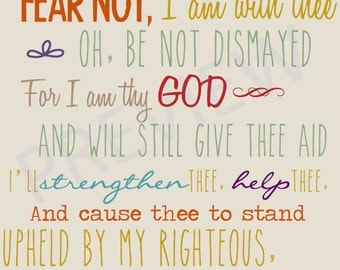 FEAR NOT, I am with thee
OH, BE NOT DISMAYED
For I am thy GOD
AND WILL STILL GIVE THEE AID
I'LL strengthen THEE, help THEE,
And cause thee to stand
UPHELD BY MY RIGHTEOUS,
PREVIEW